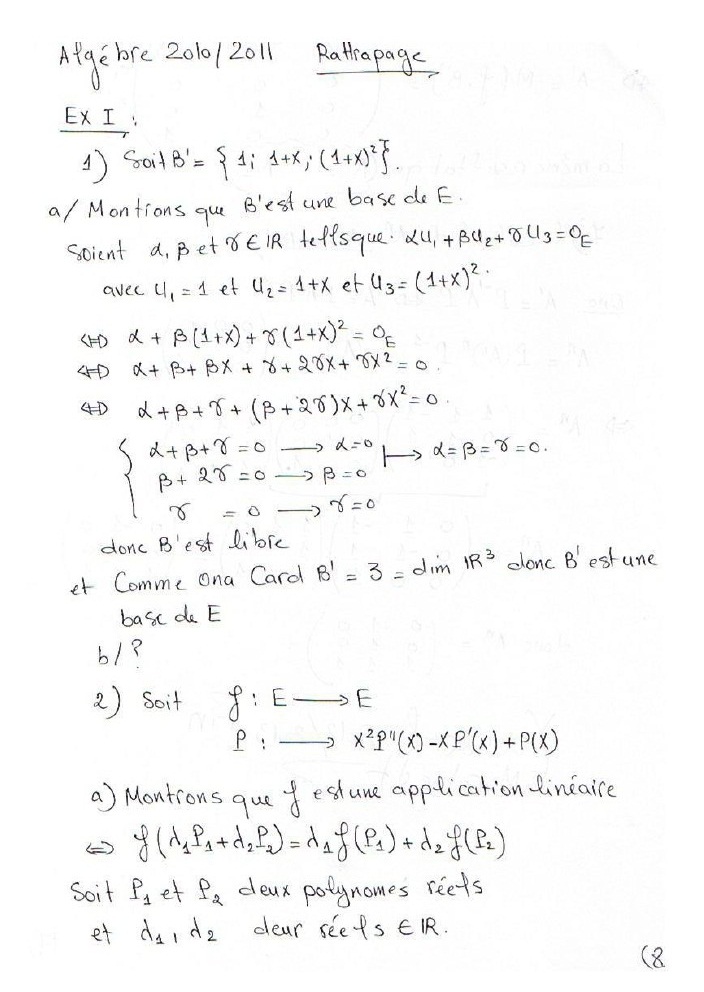 Algébre 2010/2011 Rattrapage
EX I :
1) Soit B' = { 1; 1+X; (1+X)² }.
a/ Montrons que B' est une base de E.
Soient α, β et γ ∈ IR tellsque: αU₁ + βU₂ + γU₃ = 0_E
avec U₁ = 1 et U₂ = 1+X et U₃ = (1+X)².
⇔ α + β(1+X) + γ(1+X)² = 0_E
⇔ α + β + βX + γ + 2γX + γX² = 0.
⇔ α + β + γ + (β + 2γ)X + γX² = 0.
{ α + β + γ = 0 → α = 0 ↦ α = β = γ = 0.
β + 2γ = 0 → β = 0
γ = 0 → γ = 0
donc B' est libre
et Comme ona Card B' = 3 = dim IR³ donc B' est une
base de E
b/ ?
2) Soit f : E → E
P : → X²P''(X) - XP'(X) + P(X)
a) Montrons que f est une application linéaire
⇔ f(d₁P₁ + d₂P₂) = d₁f(P₁) + d₂f(P₂)
Soit P₁ et P₂ deux polynomes réels
et d₁, d₂ deur réels ∈ IR.
(8